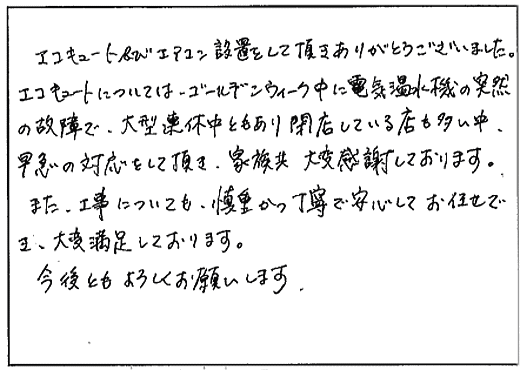 エコキュート及びエアコン設置をして頂きありがとうございました。
エコキュートについては、ゴールデンウィーク中に電気温水機の突然
の故障で、大型連休中ともあり閉店している店も多い中、
早急の対応をして頂き、家族共 大変感謝しております。
また、工事についても、慎重かつ丁寧で安心してお任せで
き、大変満足しております。
今後ともよろしくお願いします.